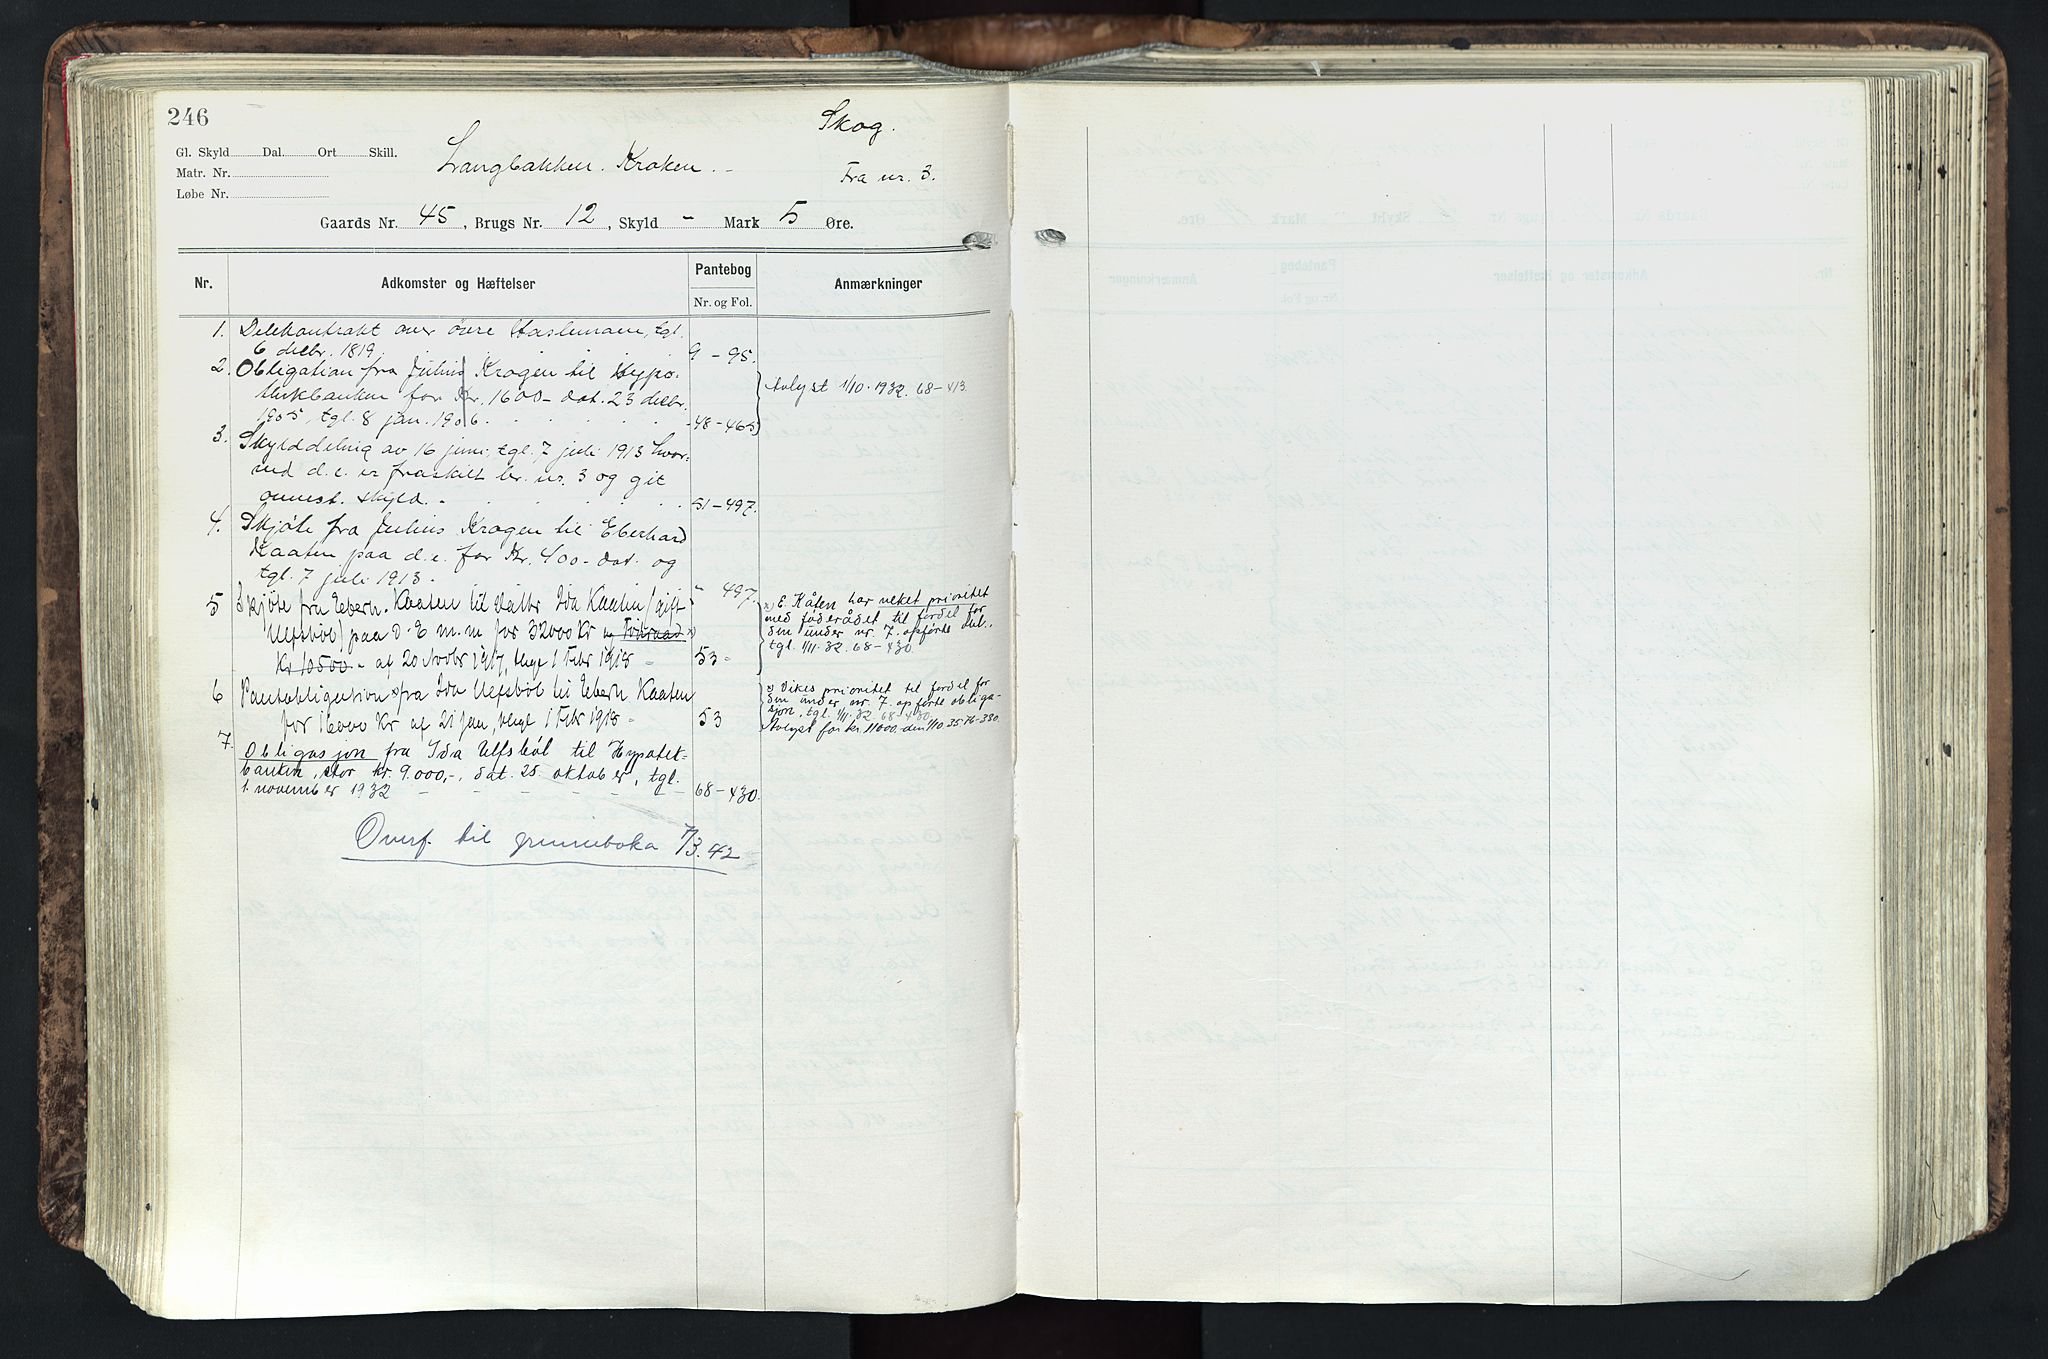 246
Skog.
Gl. Skyld Dal. Ort Skill.
Matr. Nr.
Løbe Nr.
Langbakken. Kroken. –
Fra nr. 3.
Gaards Nr. 45, Brugs Nr. 12, Skyld – Mark 5 Øre.
Nr. Adkomster og Hæftelser Pantebog Anmærkninger
Nr. og Fol.
1. Delekontrakt over övre Haslemoen, tgl.
6 decbr. 1819. 9 – 95.
2. Obligation fra Julius Krogen til Hypo-
thekbanken for Kr. 1600 – dat. 23 decbr.
1905, tgl. 8 jan. 1906. 48 – 465
Avlyst 1/10. 1932. 68 – 413.
3. Skylddeling av 16 juni, tgl. 7 juli 1913 hvor-
ved d. e. er fraskilt br. nr. 3 og git
ommeldt. skyld. – 51 – 497.
4. Skjöte fra Julius Krogen til Eberhard
Kaaten paa d. e. for Kr. 400 – dat. og
tgl. 7 juli 1913 – " 497.
5 Skjöte fra Eberh. Kaaten til Datter Ida Kaaten (gift
Ulfsböl) paa d. E m. m for 32000 Kr og Föderaad x)
Kr 10500 – af 20 Novbr 1917, tlyst 1 Febr 1918 – 53 –
x) E. Kåten har veket prioritet
med föderådet til fordel for
den under nr. 7. opförte obl.,
tgl. 1/11. 32. 68 – 430.
6 Pantobligation x) fra Ida Ulfsböl til Eberh Kaaten
for 16000 Kr af 21 jan, tlyst 1 Febr 1918 – 53
x) Vikes prioritet til fordel for
den under nr. 7. opförte obliga-
sjon, tgl. 1/11. 32. 68 – 430.
Avlyst for kr. 11000. den 1/10. 35 76 – 330.
7. Obligasjon fra Ida Ulfsböl til Hypotek-
banken, stor kr. 9.000,-, dat. 25. oktober, tgl.
1. november 1932 – – – – – – 68 – 430.
Overf. til grunnboka 7/3. 42